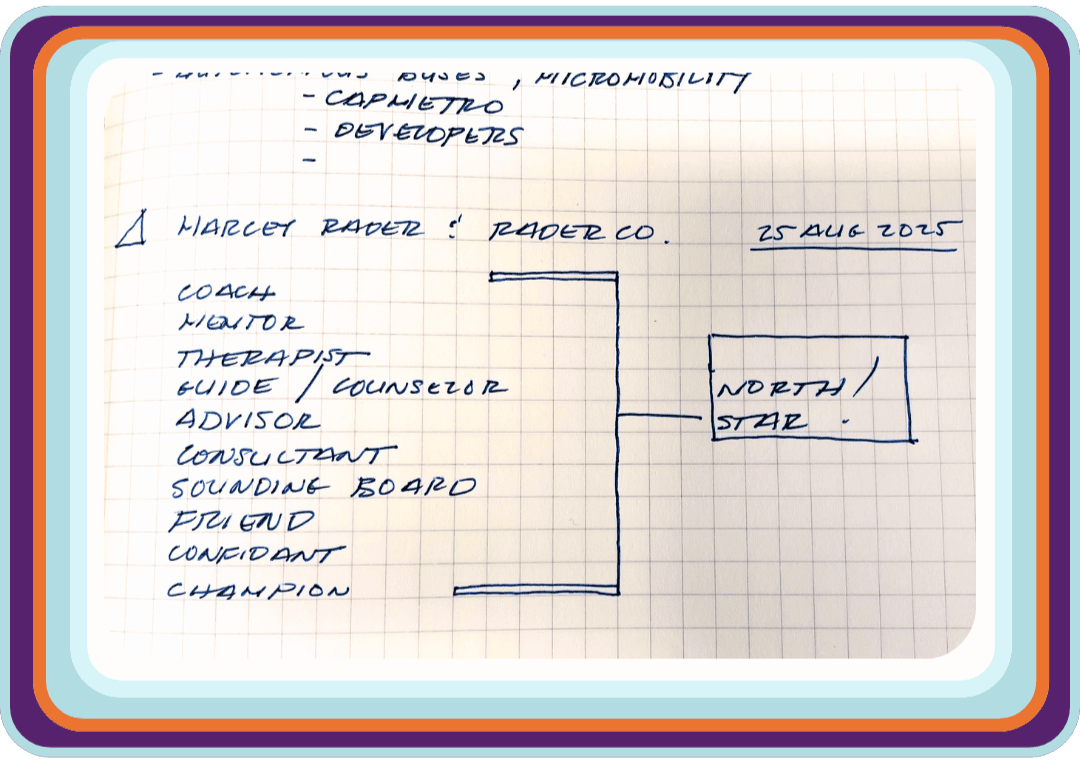 BUSES, MICROMOBILITY
- CAPMETRO
- DEVELOPERS
-
Δ MARCEY RADER & RADER CO. 25 AUG 2025
COACH
MENTOR
THERAPIST
GUIDE / COUNSELOR
ADVISOR
CONSULTANT
SOUNDING BOARD
FRIEND
CONFIDANT
CHAMPION
NORTH/
STAR.